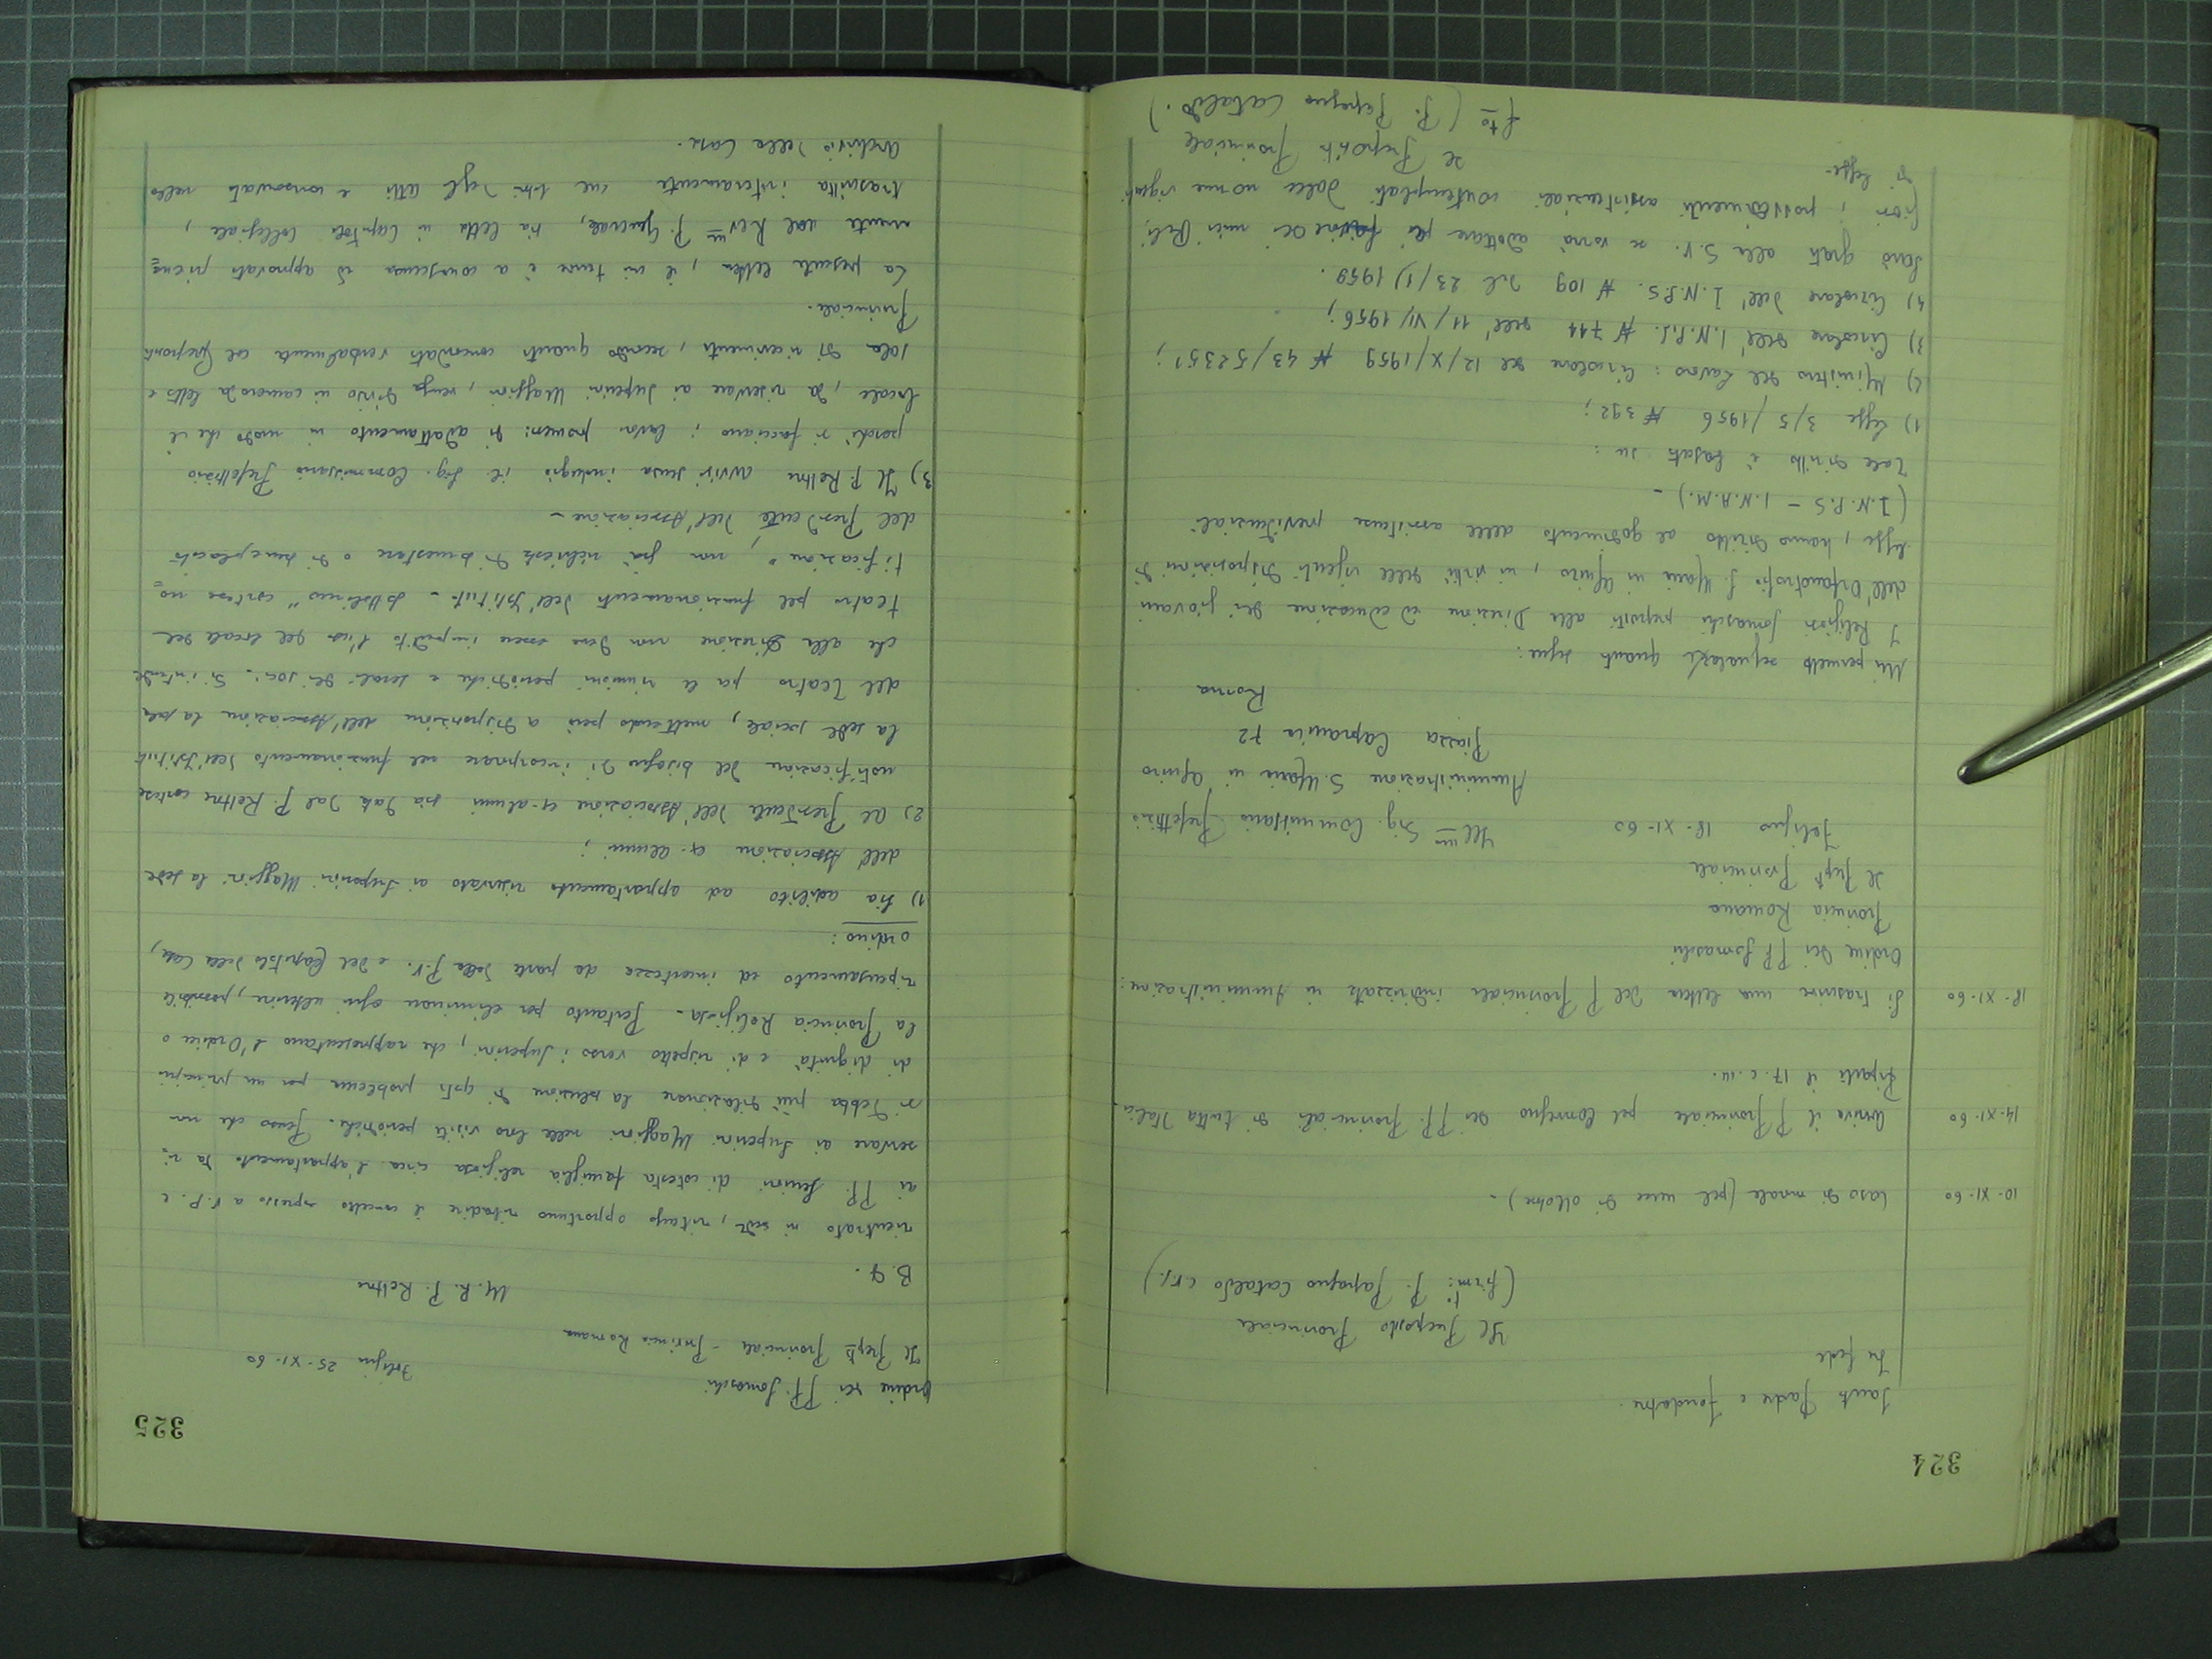 324
Santo Padre e Fondatore.
In fede
Il Preposto Provinciale
(firm: P. Papagno Cataldo c.r.s.)
to
10-XI-60 Caso di morale (pel mese di ottobre) -
14-XI-60 Arriva il P. Provinciale pel Convegno dei PP. Provinciali di tutta Italia.
Riparte il 17 c.m.
18-XI-60 Si trascrive una lettera del P. Provinciale indirizzata in Amministrazione:
Ordine dei PP. Somaschi
Provincia Romana
Il Prep.to Provinciale
Foligno 18-XI-60 Ill.mo Sig. Commissario Prefettizio
Amministrazione S. Maria in Aquiro
Piazza Capranica 72
Roma
Mi permetto segnalarLe quanto segue:
I Religiosi Somaschi preposti alla Direzione ed educazione dei giovani
dell'Orfanotrofio S. Maria in Aquiro, in virtù delle vigenti disposizioni di
legge, hanno diritto al godimento delle assistenze previdenziali
(I.N.P.S - I.N.A.M.) -
Tale diritto è basato su:
1) Legge 3/5/1956 N 392;
2) Ministero del Lavoro: Circolare del 12/X/1959 N 43/52351;
3) Circolare dell'I.N.P.S. N 711 dell' 11/VI/1956;
4) Circolare dell'I.N.P.S. N 109 del 23/1/1959.
Sarò grato alla S.V. se vorrà adottare pei miei Reli:
giosi, i provvedimenti assistenziali contemplati dalle norme vigenti
di legge.
Il Preposito Provinciale
f.to (P. Papagno Cataldo.)
325
Ordine dei PP. Somaschi Foligno 25-XI-60
Il Prep.to Provinciale - Provincia Romana
M. R. P. Rettore
B. D.
rientrato in sede, ritengo opportuno ribadire il concetto espresso a V. P. e
ai PP. Seniori di cotesta famiglia religiosa circa l'appartamento da ri=
servare ai Superiori Maggiori nelle loro visite periodiche. Penso che non
si debba più dilazionare la soluzione di q.sto problema per un principio
di dignità e di rispetto verso i Superiori, che rappresentano l'Ordine o
la Provincia Religiosa. Pertanto per eliminare ogni ulteriore, possibile
ripensamento ed incertezza da parte della P.V. e del Capitolo della Casa,
ordino:
1) Sia adibito ad appartamento riservato ai Superiori Maggiori la sede
dell'Associazione ex-alunni;
2) Al Presidente dell'Associazione ex-alunni sia data dal P. Rettore cortese
notificazione del bisogno di incorporare nel funzionamento dell'Istituto
la sede sociale, mettendo però a disposizione dell'Associazione la sala
del Teatro per le riunioni periodiche e serali dei soci. Si intende
che alla Direzione non deve essere impedito l'uso del locale del
teatro pel funzionamento dell'Istituto - sottolineo "cortese no=
tificazione", non già richiesta di benestare o di beneplacito
del Presidente dell'Associazione -
3) Il P. Rettore avvisi senza indugio il Sig. Commissario Prefettizio
perchè si facciano i lavori promessi di adattamento in modo che il
locale, da riservare ai Superiori Maggiori, venga diviso in camera da letto e
sala di ricevimento, secondo quanto concordato verbalmente col Preposito
Provinciale.
La presente lettera, il cui tenore è a conoscenza ed approvato piena=
mente dal Rev.mo P. Generale, sia letta in Capitolo Collegiale,
trascritta interamente nel libro degli Atti e conservata nello
Archivio della Casa.